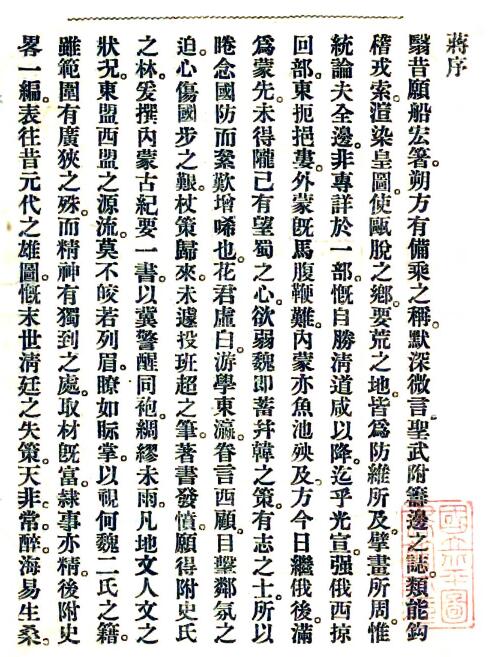 蔣序
翳昔願船宏箸。朔方有備乘之稱。默深微言。聖武附籌邊之誌。類能鈎
稽戎索。渲染皇圖。使甌脫之鄉。要荒之地。皆爲防維所及。擘畫所周。惟
統論夫全邊。非專詳於一部。慨自勝清道咸以降。迄乎光宣。强俄西掠
回部。東扼挹婁。外蒙旣馬腹鞭難。內蒙亦魚池殃及。方今日繼俄後。滿
爲蒙先。未得隴已有望蜀之心。欲弱魏即蓄幷韓之策。有志之士。所以
睠念國防而絫歎增唏也。花君虛白。游學東瀛。眷言西顧。目擊鄰氛之
迫。心傷國步之艱。杖策歸來。未遽投班超之筆。著書發憤。願得附史氏
之林。爰撰內蒙古紀要一書。以冀警醒同袍。綢繆未雨。凡地文人文之
狀况。東盟西盟之源流。莫不皎若列眉。瞭如眎掌。以視何魏二氏之籍。
雖範圍有廣狹之殊。而精神有獨到之處。取材旣富。隷事亦精。後附史
畧一編。表往昔元代之雄圖。慨末世清廷之失策。天非常醉。海易生桑。